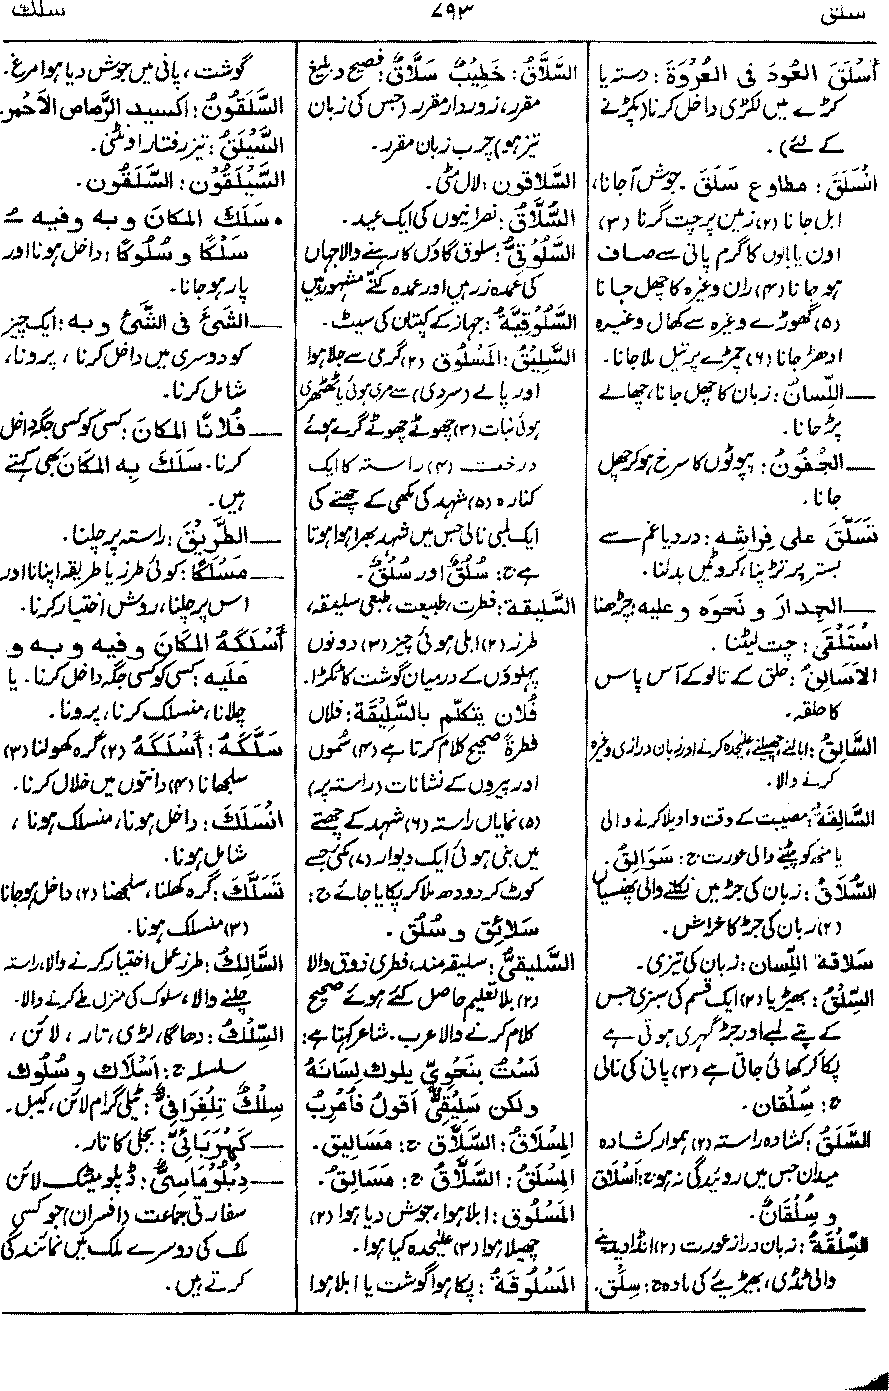 سلق
۷۹۳
سلك
أَسْلَقَ العُودَ فی العُرْوَةِ: دستہ یا
کڑے میں لکڑی داخل کرنا (پکڑنے
کے لئے)۔
انْسَلَقَ: مطاوع سَلَقَ۔ جوش آجانا،
ابل جانا (۲) زمین پر چت گرنا (۳)
اون یا بالوں کا گرم پانی سے صاف
ہو جانا (۴) ران وغیرہ کا چھل جانا
(۵) گھوڑے وغیرہ سے کھال وغیرہ
ادھڑ جانا (۶) چمڑے پر تیل ملا جانا۔
— اللِّسانُ: زبان کا چھل جانا، چھالے
پڑ جانا۔
— الجُفُونُ: پپوٹوں کا سرخ ہو کر چھل
جانا۔
تَسَلَّقَ علی فِراشِه: درد یا غم سے
بستر پر تڑپنا، کروٹیں بدلنا۔
— الجِدارَ و نَحوَه و علیه: چڑھنا
اسْتَلْقَى: چت لیٹنا۔
الأسَالِقُ: حلق کے تالو کے آس پاس
کا حلقہ۔
السَّالِقُ: ابالنے، چھیلنے، علیحدہ کرنے اور زبان درازی وغیرہ
کرنے والا۔
السَّالِقَةُ: مصیبت کے وقت واویلا کرنے والی
یا منہ کو پیٹنے والی عورت ج: سَوَالِقُ۔
السُّلَاقُ: زبان کی جڑ میں نکلنے والی پھنسیاں
(۲) زبان کی جڑ کا خراش۔
سَلاقة اللِّسان: زبان کی تیزی۔
السِّلْقُ: بھیڑیا (۲) ایک قسم کی سبزی جس
کے پتے لمبے اور جڑ گہری ہوتی ہے
پکا کر کھائی جاتی ہے (۳) پانی کی نالی
ج: سِلْقان۔
السَّلَقُ: کشادہ راستہ (۲) ہموار کشادہ
میدان جس میں روئیدگی نہ ہو ج: أسْلَاق
و سِلْقَانٌ۔
السِّلْقَةُ: زبان دراز عورت (۲) انڈا دینے
والی ٹڈی، بھیڑیئے کی مادہ ج: سِلَق۔
السَّلَّاقُ: خَطِیبٌ سَلَّاقٌ: فصیح و بلیغ
مقرر، زوردار مقرر (جس کی زبان
تیز ہو) چرب زبان مقرر۔
السَّلاقون: لال مٹی۔
السُّلَّاقُ: نصرانیوں کی ایک عید۔
السَّلُوقِیُّ: سلوق گاؤں کا رہنے والا جہاں
کی عمدہ زرہیں اور عمدہ کتے مشہور ہیں
السَّلُوقِیَّةُ: جہاز کے کپتان کی سیٹ۔
السَّلِیقُ: المَسْلُوق (۲) گرمی سے جلا ہوا
اور پالے (سردی) سے مری ہوئی یا ٹھٹھری
ہوئی نبات (۳) چھوٹے چھوٹے گرے ہوئے
درخت (۴) راستہ کا ایک
کنارہ (۵) شہد کی مکھی کے چھتے کی
ایک لمبی نالی جس میں شہد بھرا ہوا ہوتا
ہے ج: سُلُقٌ اور سُلْقٌ۔
السَّلِیقَة: فطرت، طبیعت، طبعی سلیقہ،
طرز (۲) ابلی ہوئی چیز (۳) دونوں
پہلوؤں کے درمیان گوشت کا ٹکڑا۔
فُلَان یتکلّم بالسَّلِیقَة: فلاں
فطرۃً صحیح کلام کرتا ہے (۴) سُموں
اور پیروں کے نشانات (راستہ پر)
(۵) نمایاں راستہ (۶) شہد کے چھتے
میں بنی ہوئی ایک دیوار (۷) مکئی جسے
کوٹ کر دودھ ملا کر پکایا جائے ج:
سَلائِق و سُلُق۔
السَّلِیقِیُّ: سلیقہ مند، فطری ذوق والا
(۲) بلا تعلیم حاصل کئے ہوئے صحیح
کلام کرنے والا عرب۔ شاعر کہتا ہے:
لَسْتُ بنَحْوِیٍّ یلوك لِسَانَهُ
ولكن سَلِیقِیٌّ أقولُ فأعرِبُ
المِسْلَاقُ: السَّلَّاق ج: مَسَالیق۔
المِسْلَقُ: السَّلَّاقُ ج: مَسَالِقُ۔
المَسْلُوق: ابلا ہوا، جوش دیا ہوا (۲)
چھیلا ہوا (۳) علیحدہ کیا ہوا۔
المَسْلُوقَةُ: پکا ہوا گوشت یا ابلا ہوا
گوشت، پانی میں جوش دیا ہوا مرغ۔
السَّلَقُونُ: اکسید الرَّصاص الأحمر۔
السَّیْلَقُ: تیز رفتار اونٹنی۔
السَّیْلَقُون: السَّلَقُون۔
• سَلَكَ المكانَ و به وفیه ــُ
سَلْكًا و سُلُوكًا: داخل ہونا اور
پار ہو جانا۔
— الشَّیْءَ فی الشَّیْءِ و به: ایک چیز
کو دوسری میں داخل کرنا، پرونا،
شامل کرنا۔
— فُلَانًا المكانَ: کسی کو کسی جگہ داخل
کرنا۔ سَلَكَ به المكانَ بھی کہتے
ہیں۔
— الطَّرِیْقَ: راستہ پر چلنا۔
— مَسْلَكًا: کوئی طرز یا طریقہ اپنانا اور
اس پر چلنا، روش اختیار کرنا۔
أَسْلَكَهُ المكانَ وفیه و به و
عَلیه: کسی کو کسی جگہ داخل کرنا۔ یا
چلانا، منسلک کرنا، پرونا۔
سَلَّكَهُ: أَسْلَكَهُ (۲) گرہ کھولنا (۳)
سلجھانا (۴) دانتوں میں خلال کرنا۔
انْسَلَكَ: داخل ہونا، منسلک ہونا،
شامل ہونا۔
تَسَلَّكَ: گرہ کھلنا، سلجھنا (۲) داخل ہوجانا
(۳) منسلک ہونا۔
السَّالِكُ: طرز عمل اختیار کرنے والا، راستہ
چلنے والا، سلوک کی منزل طے کرنے والا۔
السِّلْكُ: دھاگا، لڑی، تار، لائن،
سلسلہ ج: أَسْلَاك و سُلُوك
سِلْكٌ تِلغرافیٌّ: ٹیلی گرام لائن، کیبل۔
— كَهْرَبَائیٌّ: بجلی کا تار۔
— دِبْلُومَاسِیٌّ: ڈپلومیٹک لائن
سفارتی جماعت (افسران) جو کسی
ملک کی دوسرے ملک میں نمائندگی
کرتے ہیں۔